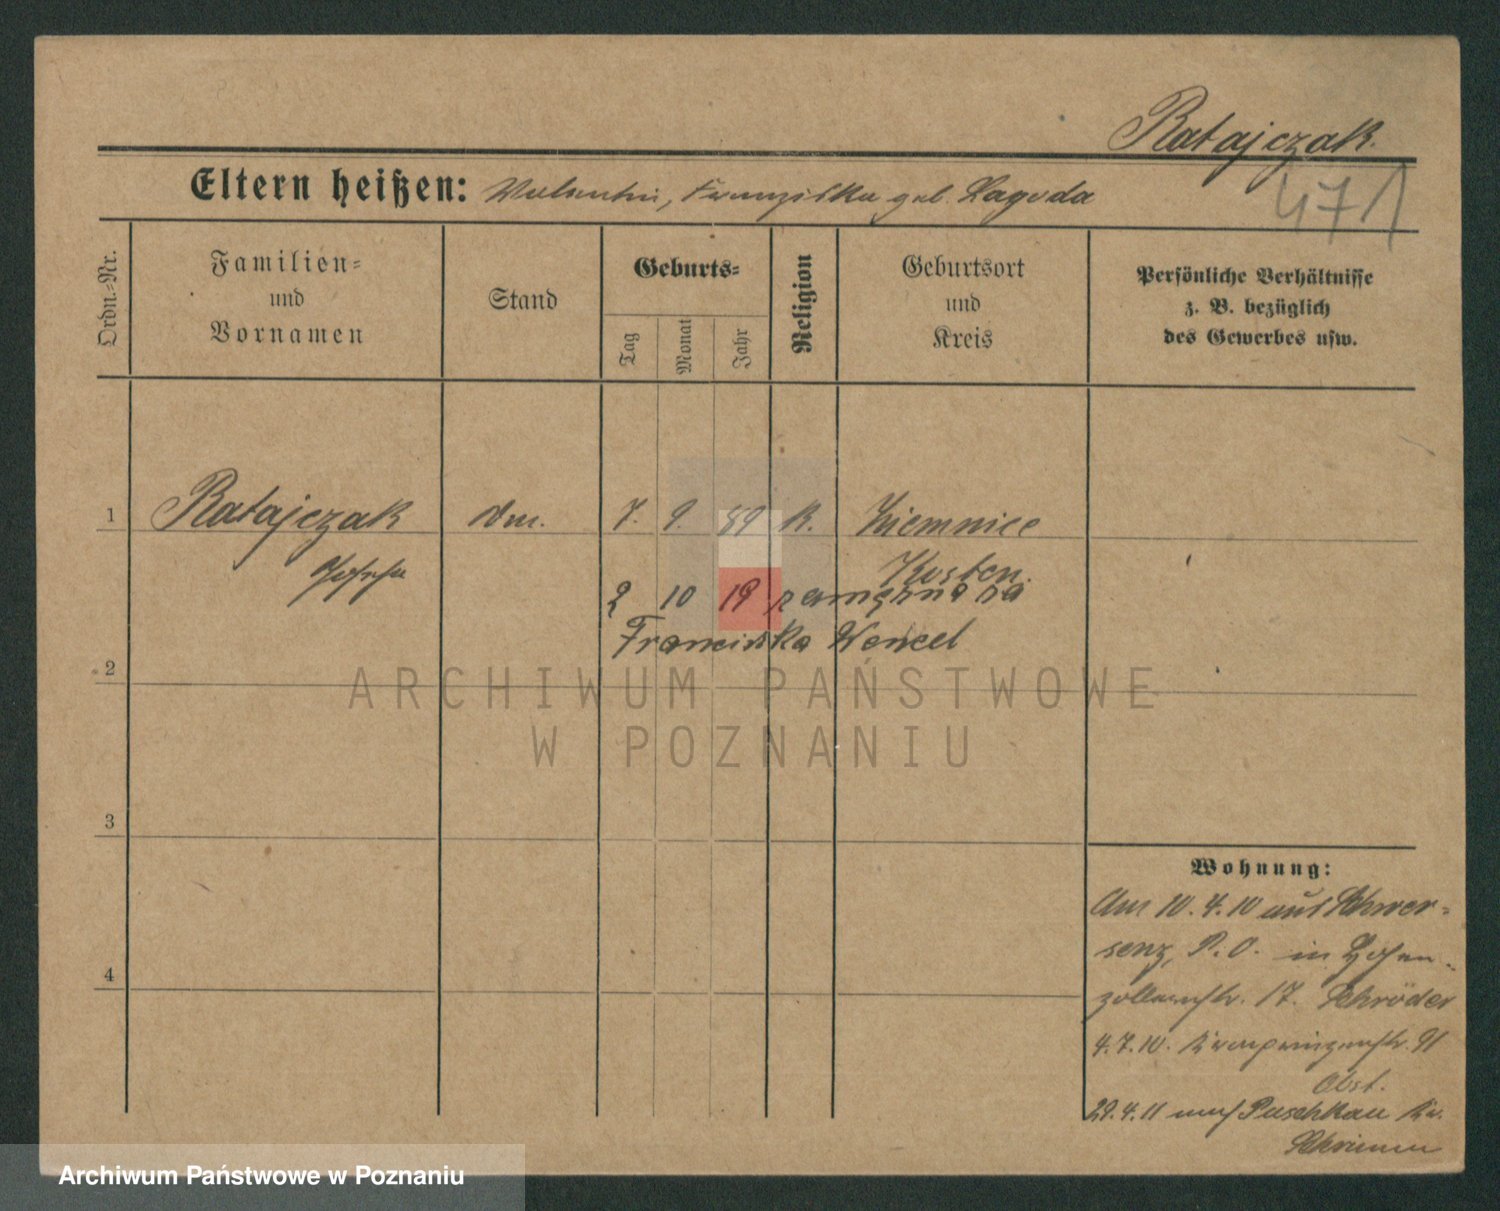 Ratajczak.
471
Eltern heißen: Valentin, Franziska geb. Lagoda
Ordn.-Nr.
Familien-
und
Vornamen
Stand
Geburts-
Tag
Monat
Jahr
Religion
Geburtsort
und
Kreis
Persönliche Verhältnisse
z. B. bezüglich
des Gewerbes usw.
1 Ratajczak 7. 9. 89 K. Ziemnice
Josefa Kosten.
2 10 19 zamężna za
Franciszka Wencel
2
3
4
Wohnung:
Am 10.4.10 aus Schwer-
senz, P.O. in Hohen-
zollernstr. 17. Schröder
4.7.10. Kronprinzenstr. 91
Obst.
29.4.11 nach Puschkau Kr.
Schrimm
ARCHIWUM PAŃSTWOWE
W POZNANIU
Archiwum Państwowe w Poznaniu